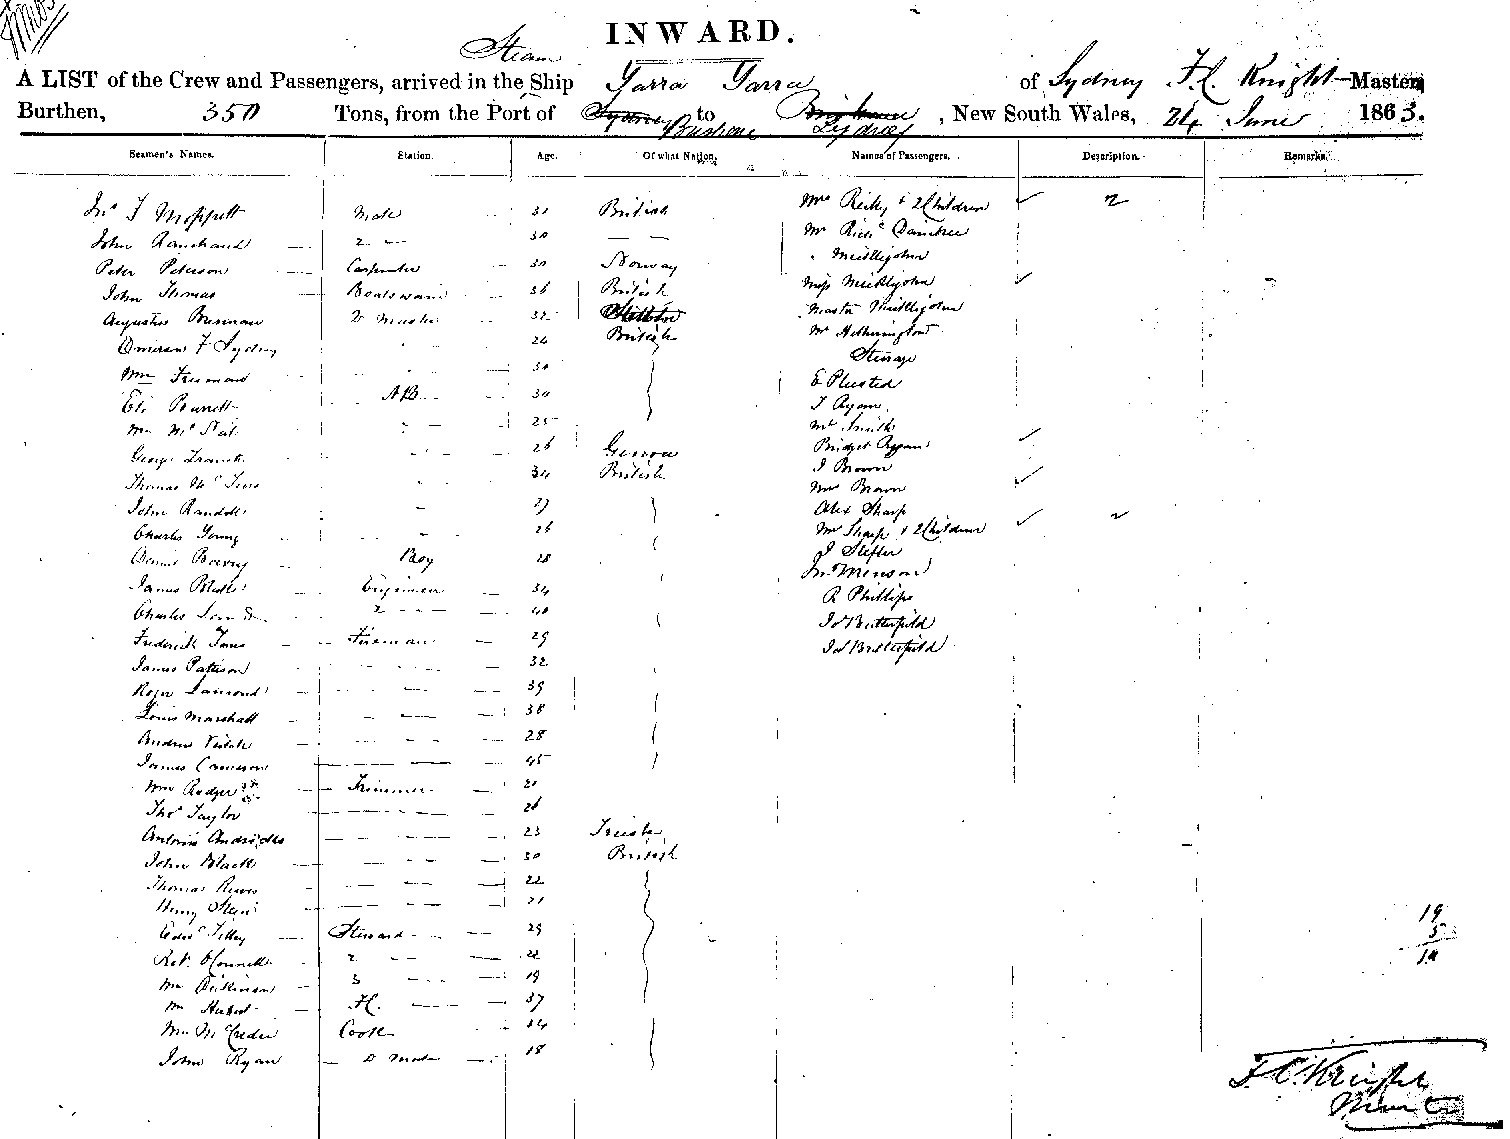 INWARD.
Steam
A LIST of the Crew and Passengers, arrived in the Ship Yarra Yarra of Sydney F. C. Knight Master,
Burthen, 350 Tons, from the Port of Sydney to Brisbane, New South Wales, 24 June 1863.
Brisbane Sydney
Seamen's Names. Station. Age. Of what Nation. Names of Passengers. Description. Remarks.
Jno T Moppett Mate 31 British Mrs Reily & 2 Children 2
John 2 30 Mr Richd Daintree
Peter Peterson Carpenter 30 Norway Meiklejohn
John Thomas Boatswain 36 British Miss Meiklejohn
Augustus 32 Master Meiklejohn
F Sydney 24 British Mr Hetherington
Wm Freeman 30 Steerage
Eli AB 30 E Plusted
Wm McNeil 25 J Ryan
George 26 Mr Smith
Thomas 34 British Bridget Ryan
John Randell 27 J Brown
Charles Young 26 Mrs Brown
Dennis Barry Boy 18 Alex Sharp
James Engineer 34 Mrs Sharp & 2 Children 2
Charles 2 40 J
Frederick Jones Fireman 29 Jno Menson
James Patterson 32 R Phillips
Roger Lamond 39 Jas Butterfield
Louis Marshall 38 Jas Butterfield
Andrew Veitch 28
James Cameron 45
Wm Rodger Trimmer 21
Thos Taylor 26
Antonio 23
John Black 30 British
Thomas 22
Henry 21
Edwd Tilley Steward 29
Robt O'Connell 2 22
Wm Dickinson 3 19
Wm Herbert F.C. 37
Wm McCreder Cook 34
John Ryan Do Mate 18
19
5
14
F. C. Knight
Master